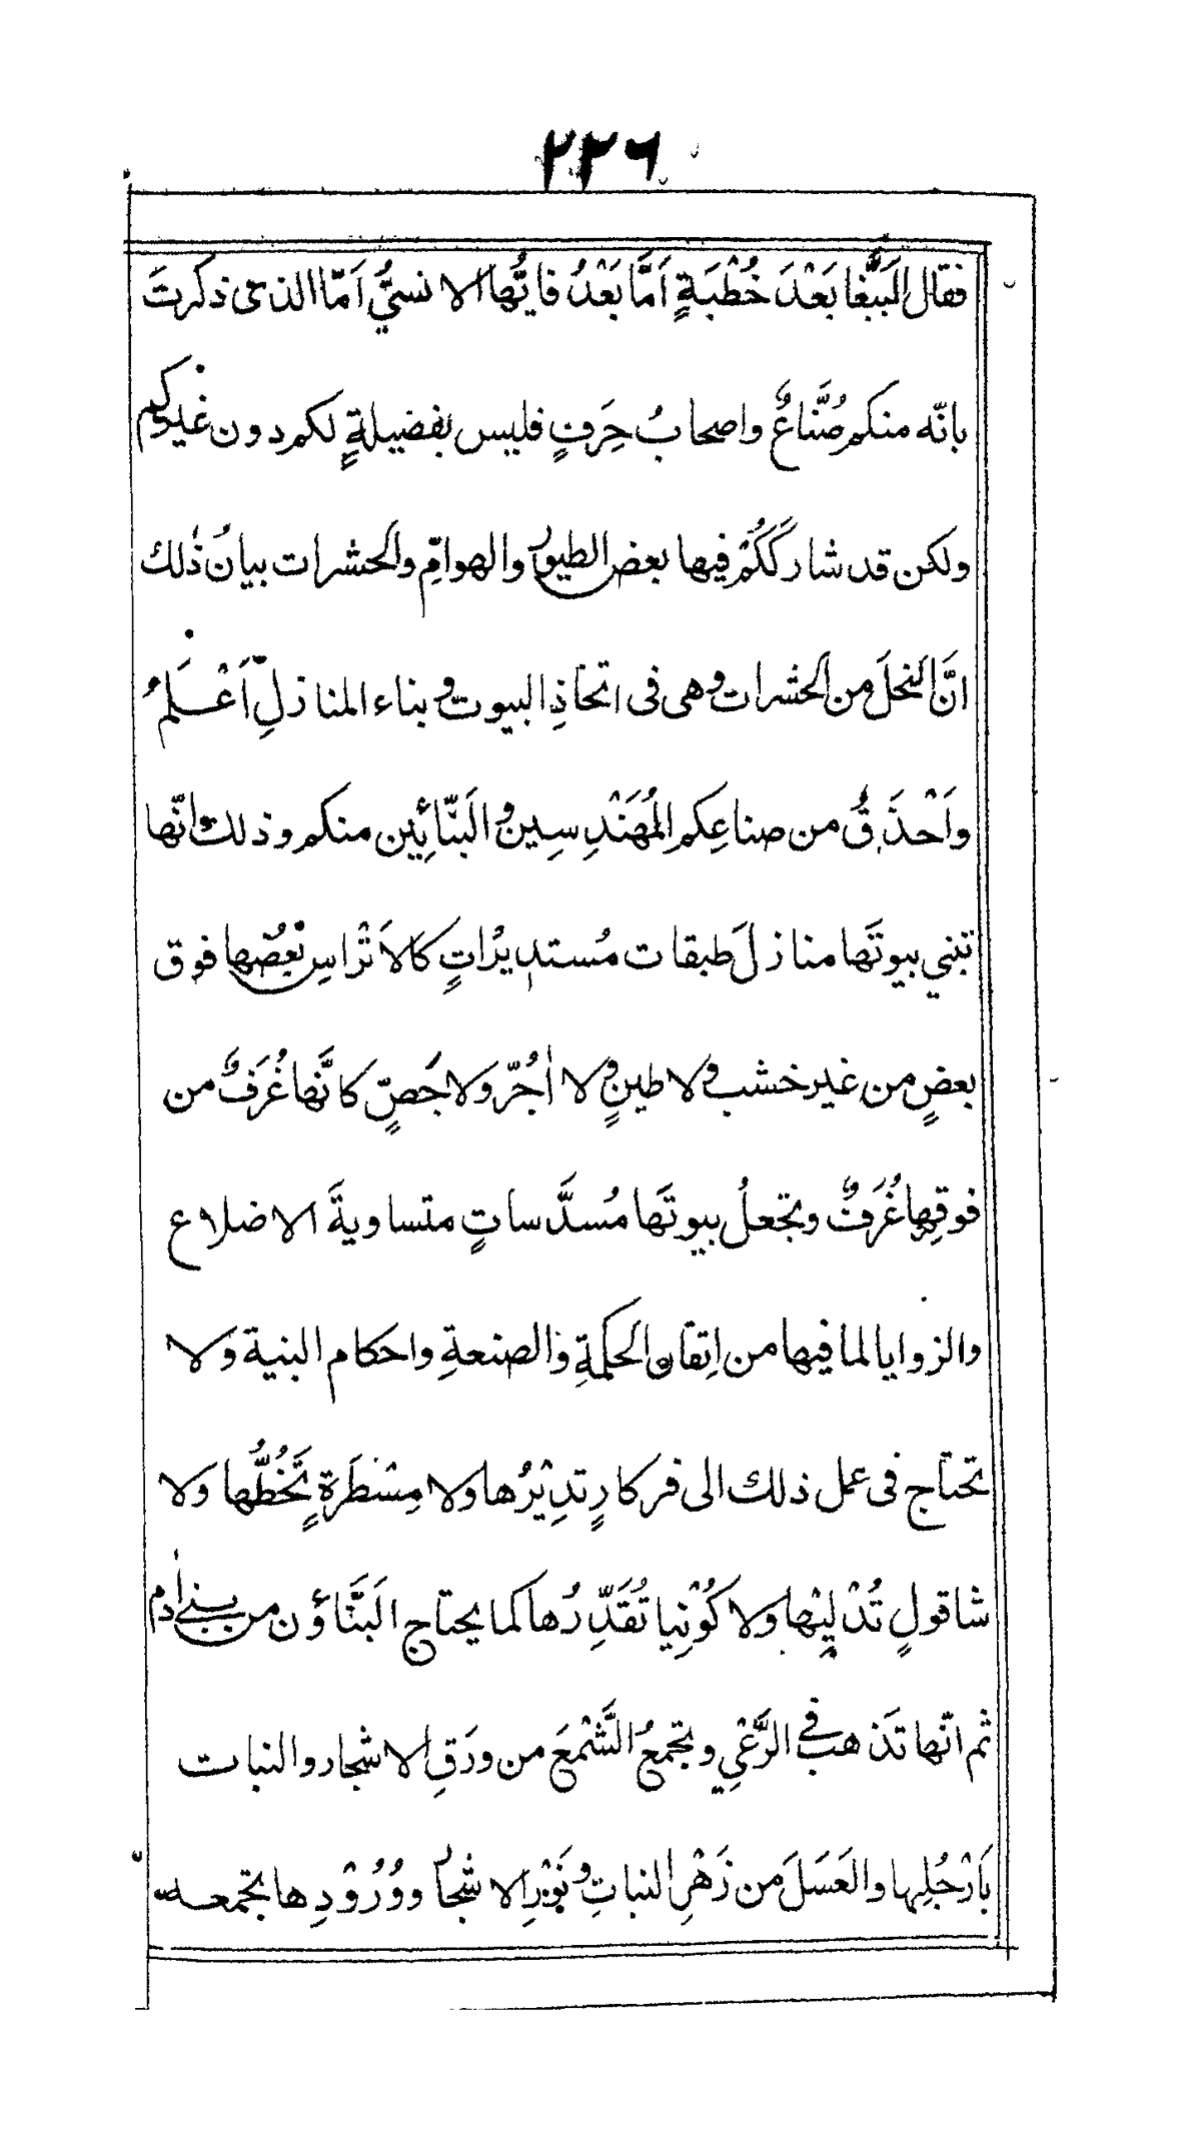 ٢٢٦
فقال الَببَّغا بَعْدَ خُطْبَةٍ اَمَّا بَعْدُ فايُّها الانسيُّ اَمّا الذى ذكرتَ
بانّه منكم صُنَّاعٌ واصحابُ حِرَفٍ فليس بفضيلةٍ لكم دون غيركم
ولكن قد شارَكَكُمْ فيها بعض الطيور والهوامِّ والحشرات بيانُ ذٰلك
انَّ النحلَ من الحشرات وهى فى اتخاذِ البيوت وبناء المنازلِ اَعْلَمُ
واَحْذَقُ من صناعِكم المُهَنْدِسِين والبَنّائِين منكم وذلك انّها
تبني بيوتَها منازلَ طبقات مُستديرٰاتٍ كالاَتْراسِ بعضُها فوق
بعضٍ من غير خشب ولا طينٍ ولا اٰجُرّ ولا جَصٍّ كانَّها غُرَفٌ من
فوقِها غُرَفٌ وتجعلُ بيوتَها مُسدَّساتٍ متساويةَ الاضلاع
والزوايا لما فيها من اِتقان الحكمةِ والصنعةِ واحكام البنية ولا
تحتاج فى عمل ذلك الى فركارٍ تدِيْرُها ولا مِسْطَرَةٍ تَخُطُّها ولا
شاقولٍ تُدْلِيْها ولا كُوْنِيا تُقَدِّرُها كما يحتاج البَنَّاؤن من بنى اٰدم
ثم انّها تَذهب فى الرَّعْىِ وتجمعُ الشَّمْعَ من ورَقِ الاشجار والنبات
بَارْجُلِها والعَسَلَ من زَهْرِ النباتِ ونَوْرِ الاشجار ووُرُوْدِها تجمعه